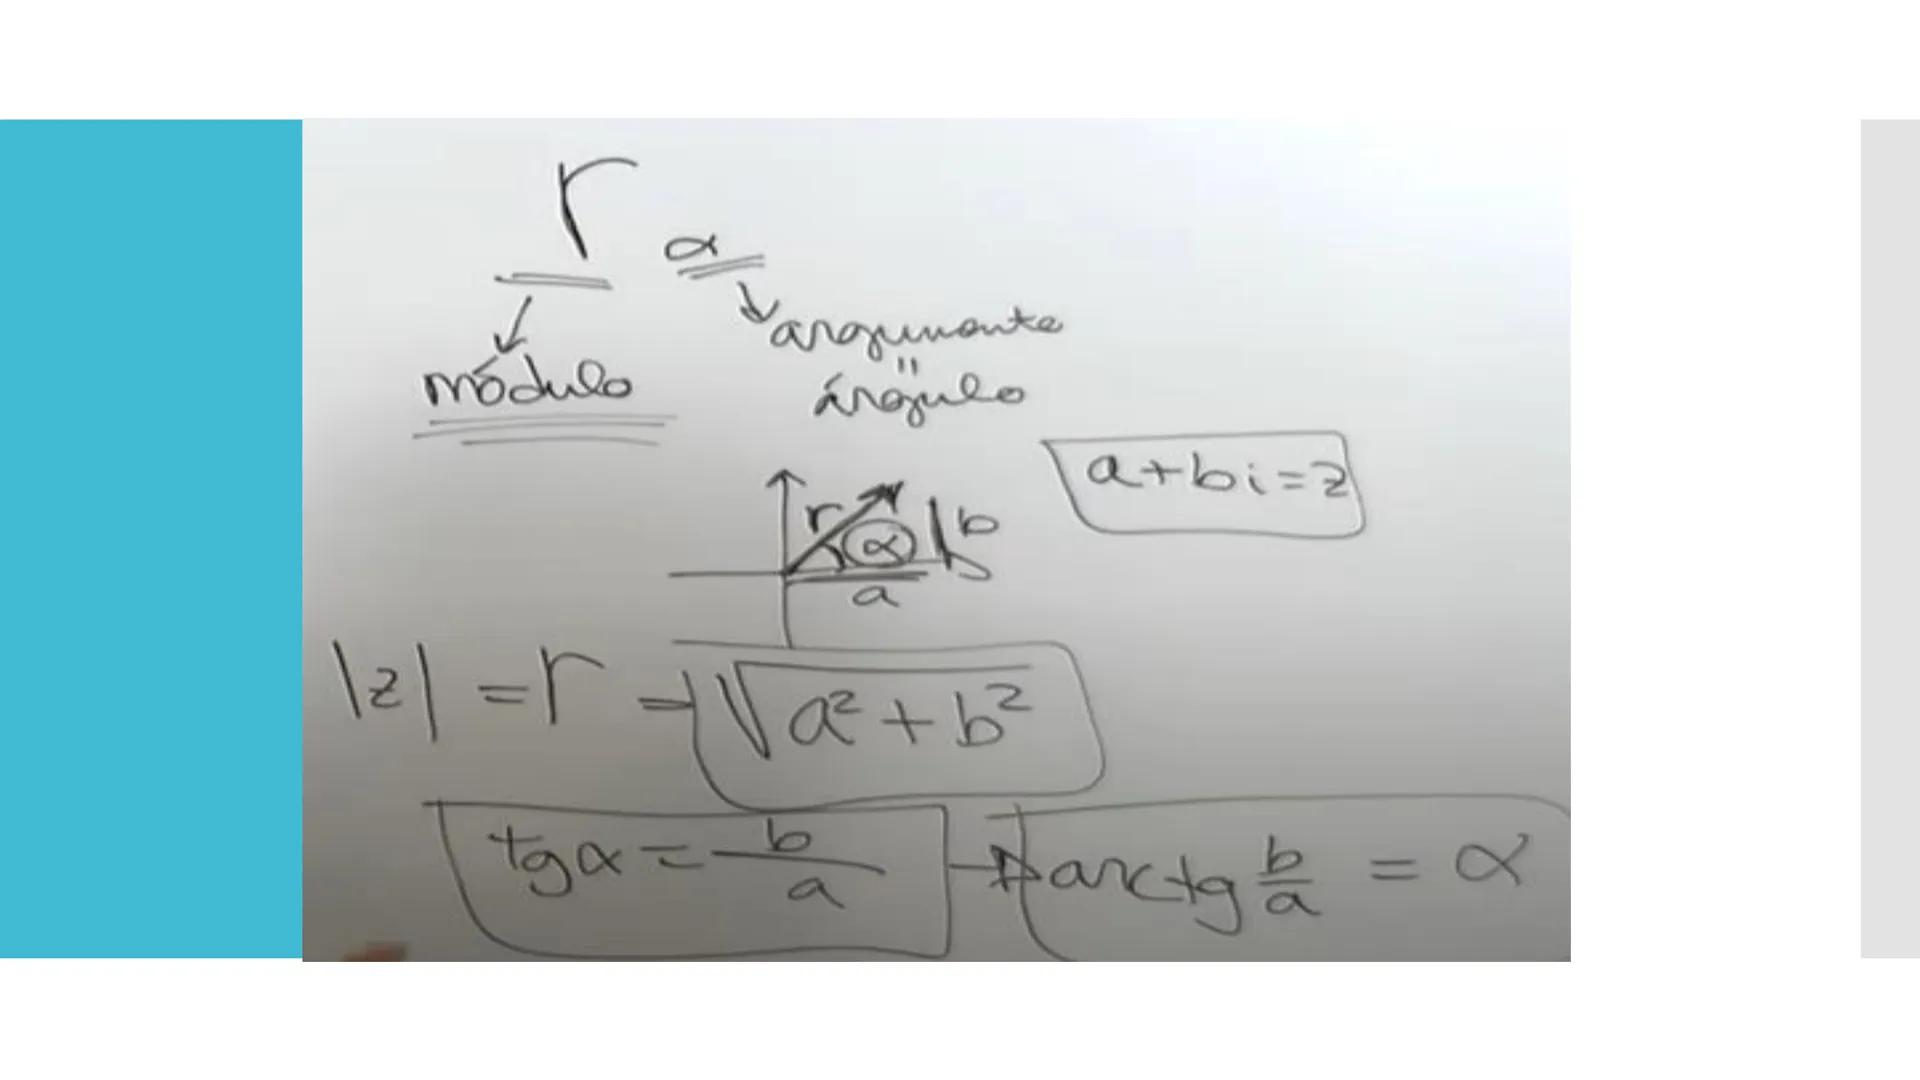 r α
módulo
argumento
"
ángulo
a+bi=z
r α b
a
|z| = r = √a² + b²
tgα = b/a → arctg b/a = α